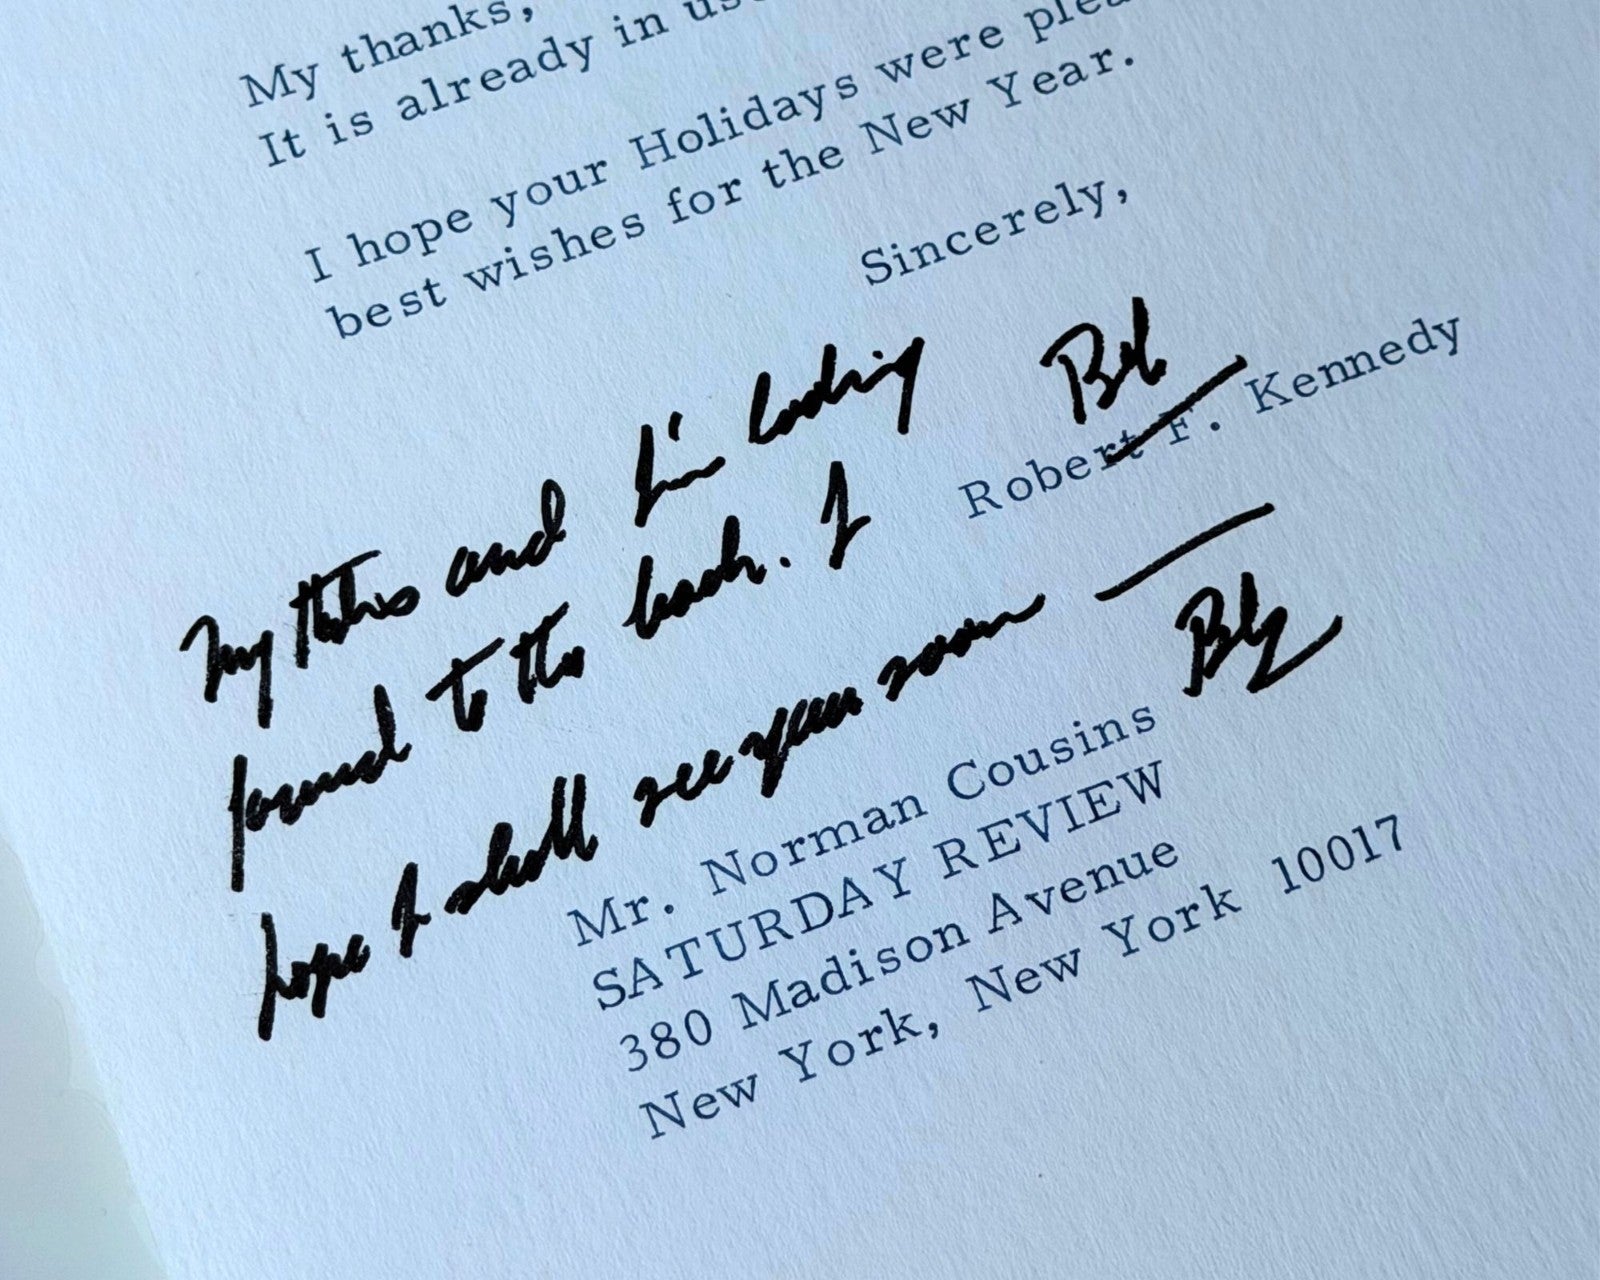 My thanks,
It is already in us
I hope your Holidays were plea
best wishes for the New Year.
Sincerely,
Bob
Robert F. Kennedy
My and I'm looking
forward to the book. I
hope I shall see you soon —
Mr. Norman Cousins
SATURDAY REVIEW
380 Madison Avenue
New York, New York 10017